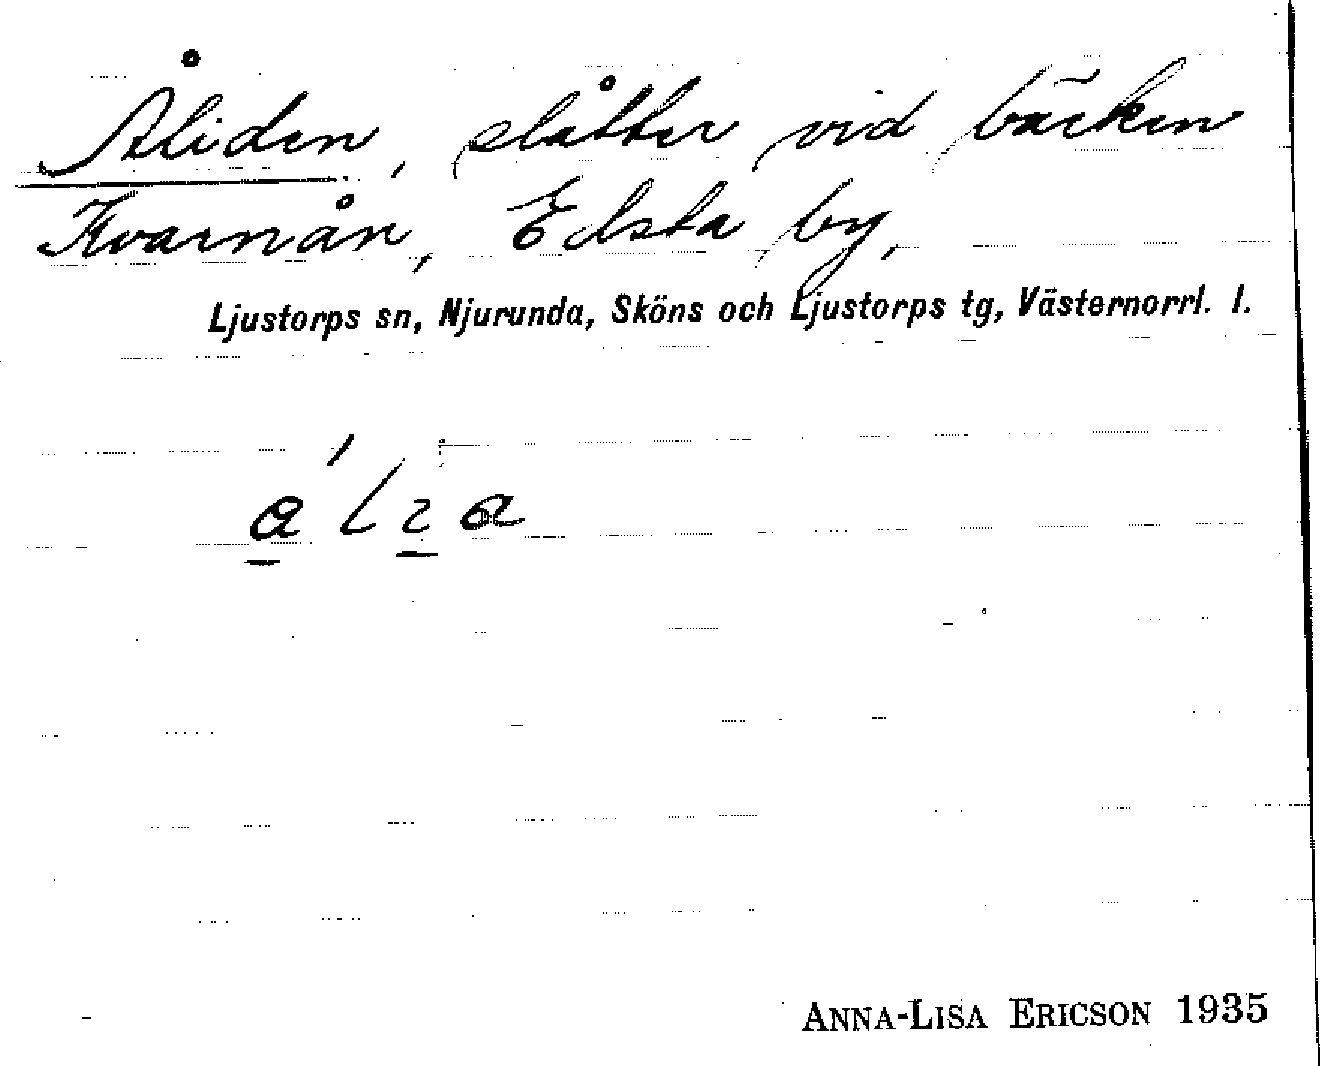 Åliden, slåtter vid bäcken
Kvarnån, Edsta by,
Ljustorps sn, Njurunda, Sköns och Ljustorps tg, Västernorrl. l.
ANNA-LISA ERICSON 1935